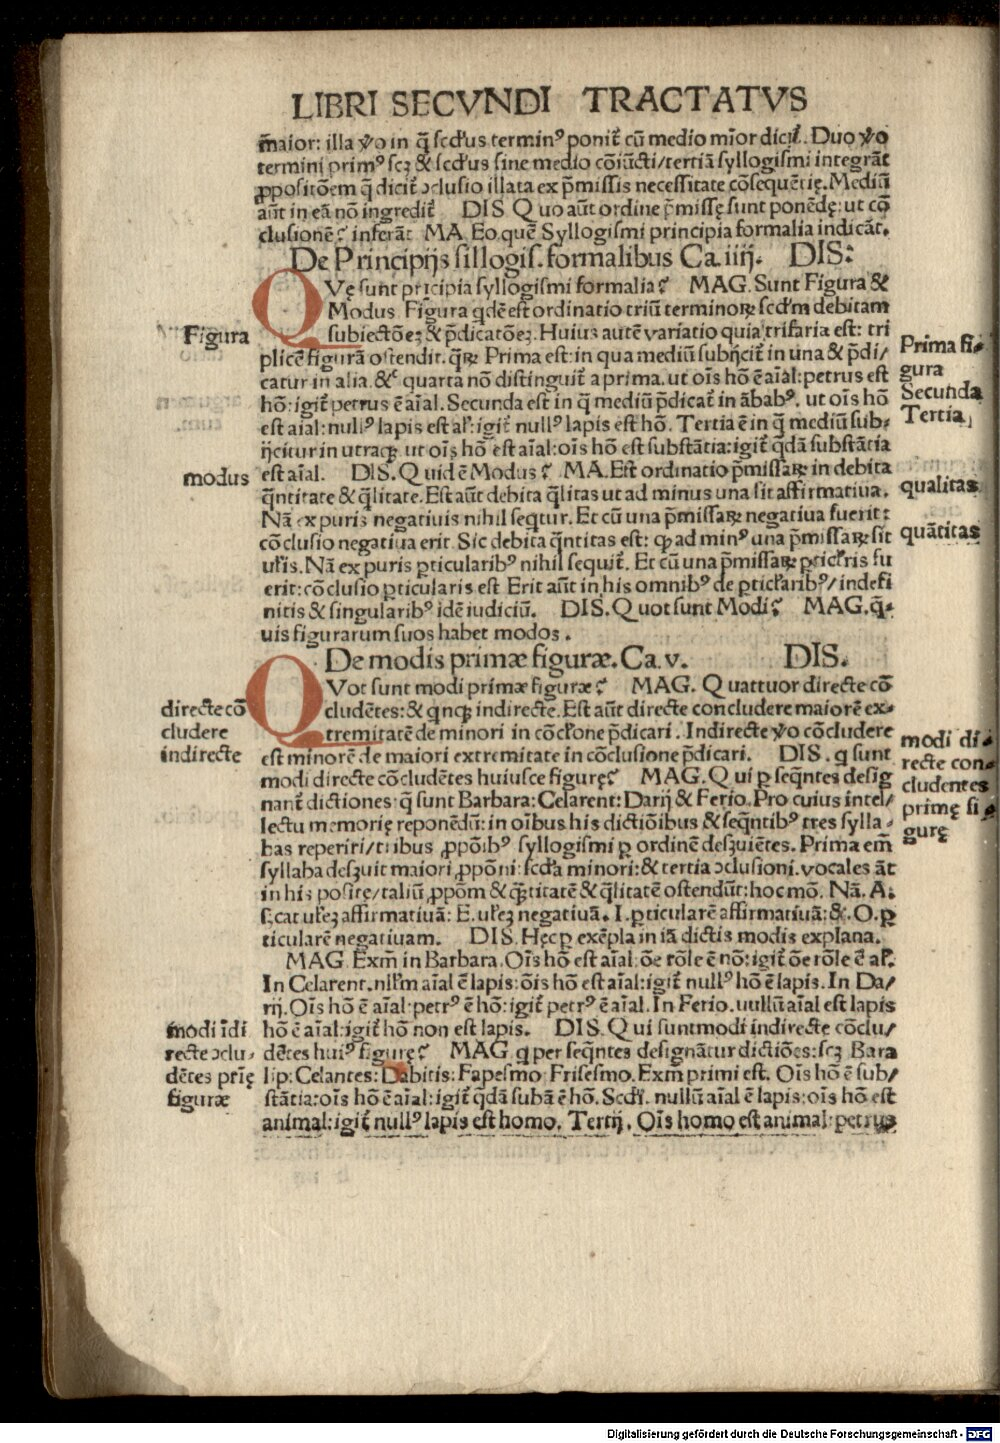 LIBRI SECVNDI TRACTATVS
m̄aior: illa ꝟo in q̄ scd'us terminꝰ ponit̄ cū medio mīor dicit̄. Duo ꝟo
termini primꝰ scꝫ & scd'us sine medio cōiūcti/tertiā syllogismi integrāt
ꝓpositōem q̄ dicit̄ ↄclusio illata ex p̄missis necessitate cōsequētię. Mediū
aūt in eā nō ingredit̄ DIS Quo aūt ordine p̄missę sunt ponēdę: ut cō
clusionē? inferāt MA Eo. quē Syllogismi principia formalia indicāt.
De Principijs sillogis. formalibus Ca. iiij. DIS:
QVę sunt prīcipia syllogismi formalia? MAG. Sunt Figura &
Modus Figura qdē est ordinatio triū terminoꝝ scd'm debitam
Figura
subiectōeꝫ & p̄dicatōeꝫ. Huius autē variatio quia trifaria est: tri
plicē figurā ostendit. q̄ꝝ Prima est: in qua mediū subijcit̄ in una & p̄di/
Prima fi-
gura
catur in alia. &c̄ quarta nō distinguit̄ a prima. ut oīs hō ē aīal: petrus est
hō: igit̄ petrus ē aīal. Secunda est in q̄ mediū p̄dicat̄ in ābabꝰ. ut oīs hō
Secunda
est aīal: nullꝰ lapis est al': igit̄ nullꝰ lapis est hō. Tertia ē in q̄ mediū sub/
Tertia
ijcitur in utraqꝫ ut oīs hō est aīal: oīs hō est substātia: igit̄ qdā substātia
modus
est aīal. DIS. Quid ē Modus? MA. Est ordinatio p̄missaꝝ in debita
q̄ntitate & q̄litate. Est aūt debita q̄litas ut ad minus una sit affirmatiua.
qualitas
Nā ex puris negatiuis nihil seqtur. Et cū una p̄missaꝝ negatiua fuerit:
cōclusio negatiua erit Sic debita q̄ntitas est: ꝙ ad minꝰ una p̄missaꝝ sit
quātitas
ul'is. Nā ex puris ꝑticularibꝰ nihil sequit̄. Et cū una p̄missaꝝ ꝑticl'ris fu
erit: cōclusio ꝑticularis est Erit aūt in his omnibꝰ de ꝑticl'aribꝰ/indefi
nitis & singularibꝰ idē iudiciū. DIS. Quot sunt Modi? MAG. q̄-
uis figurarum suos habet modos.
De modis primæ figuræ. Ca. v. DIS.
QVot sunt modi primæ figuræ? MAG. Quattuor directe cō
directe cō
cludere
indirecte
cludētes: & qnqꝫ indirecte. Est aūt directe concludere maiorē ex-
tremitatē de minori in cōcl'one p̄dicari. Indirecte ꝟo cōcludere
est minorē de maiori extremitate in cōclusione p̄dicari. DIS. q sunt
modi di-
recte con-
cludentes
primę fi
gurę
modi directe cōcludētes huiusce figurę? MAG. Qui ꝑ seq̄ntes desig
nant̄ dictiones: q̄ sunt Barbara: Celarent: Darij & Ferio. Pro cuius intel/
lectu memorię reponēdū: in oībus his dictiōibus & seq̄ntibꝰ tres sylla-
bas reperiri/tribus ꝓpōibꝰ syllogismi ꝑ ordinē desꝫuiētes. Prima em̄
syllaba desꝫuit maiori ꝓpōni: scd'a minori: & tertia ↄclusioni. vocales āt
in his posite/taliū ꝓpōm & q̄titatē & q̄litatē ostendūt: hoc mō. Nā. A.
s;cat ul'eꝫ affirmatiuā: E. ul'eꝫ negatiuā. I. ꝑticularē affirmatiuā: &. O. ꝑ
ticularē negatiuam. DIS. Hęc ꝑ exēpla in iā dictis modis explana.
MAG Exm̄ in Barbara. Oīs hō est aīal: ōe rōle ē nō: igit̄ ōe rōle ē al'.
In Celarent. nll'm aīal ē lapis: ōis hō est aīal: igit̄ nullꝰ hō ē lapis. In Da/
rij. Oīs hō ē aīal: petrꝰ ē hō: igit̄ petrꝰ ē aīal. In Ferio. uullū aīal est lapis
modi īdi
recte ↄclu-
dētes prīę
figuræ
hō ē aīal: igit̄ hō non est lapis. DIS. Qui suntmodi indirecte cōclu/
dētes huiꝰ figurę? MAG q per seq̄ntes designātur dictiōes: scꝫ Bara
lip: Celantes: Dabitis: Fapesmo Frisesmo. Exm̄ primi est. Oīs hō ē sub/
stātia: oīs hō ē aīal: igit̄ qdā subā ē hō. Scd'i. nullū aīal ē lapis: oīs hō est
animal: igit̄ nullꝰ lapis est homo. Tertij. Oīs homo est animal: petrus
Digitalisierung gefördert durch die Deutsche Forschungsgemeinschaft - DFG